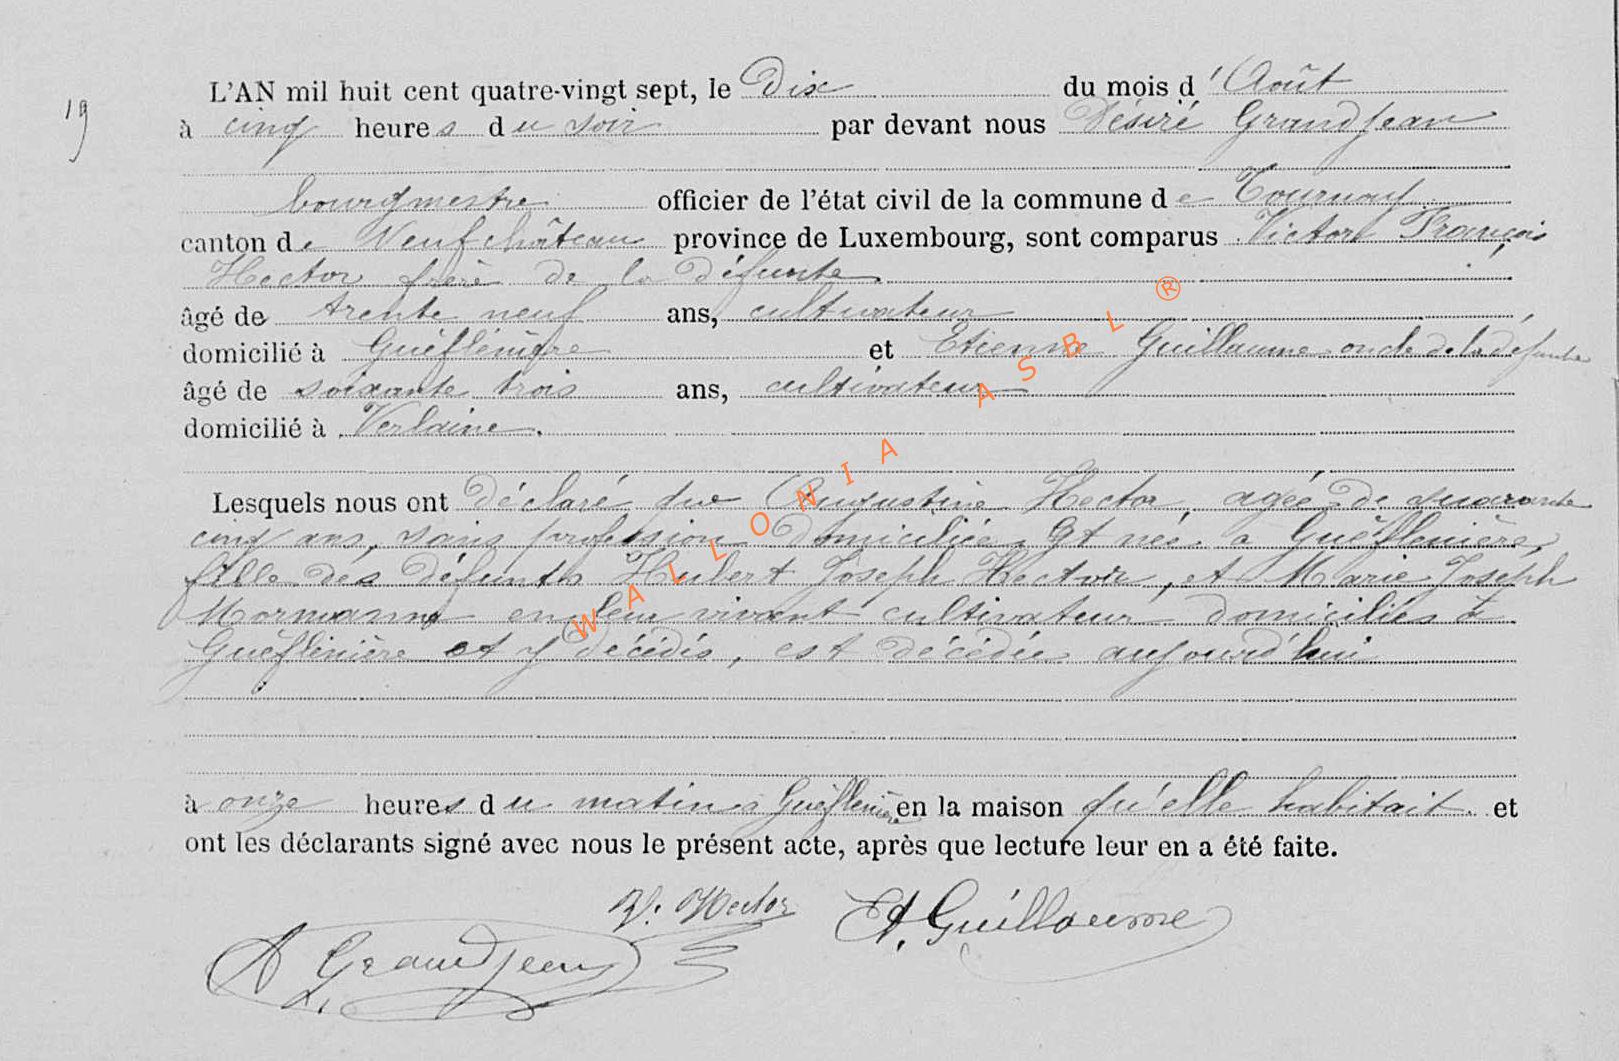 19
L'AN mil huit cent quatre-vingt sept, le Dix du mois d'Août
à cinq heures du soir par devant nous Désiré Grandjean
bourgmestre officier de l'état civil de la commune de Tournay
canton de Neufchâteau province de Luxembourg, sont comparus Victor François
Hector frère de la défunte
âgé de trente neuf ans, cultivateur
domicilié à Guèflenière et Etienne Guillaume oncle de la défunte
âgé de soixante trois ans, cultivateur
domicilié à Verlaine.
Lesquels nous ont déclaré que Augustine Hector, agée de quarante
cinq ans, sans profession domiciliée et née à Guèflenière,
fille des défunts Hubert Joseph Hector, et Marie Joseph
Mormanne en leur vivant cultivateur domiciliés à
Guèflenière et y décédés, est décédée aujourd'hui
à onze heures du matin à Guèflenière en la maison qu'elle habitait. et
ont les déclarants signé avec nous le présent acte, après que lecture leur en a été faite.
V. Hector Et. Guillaume
Grandjean
WALLONIA ASBL ®